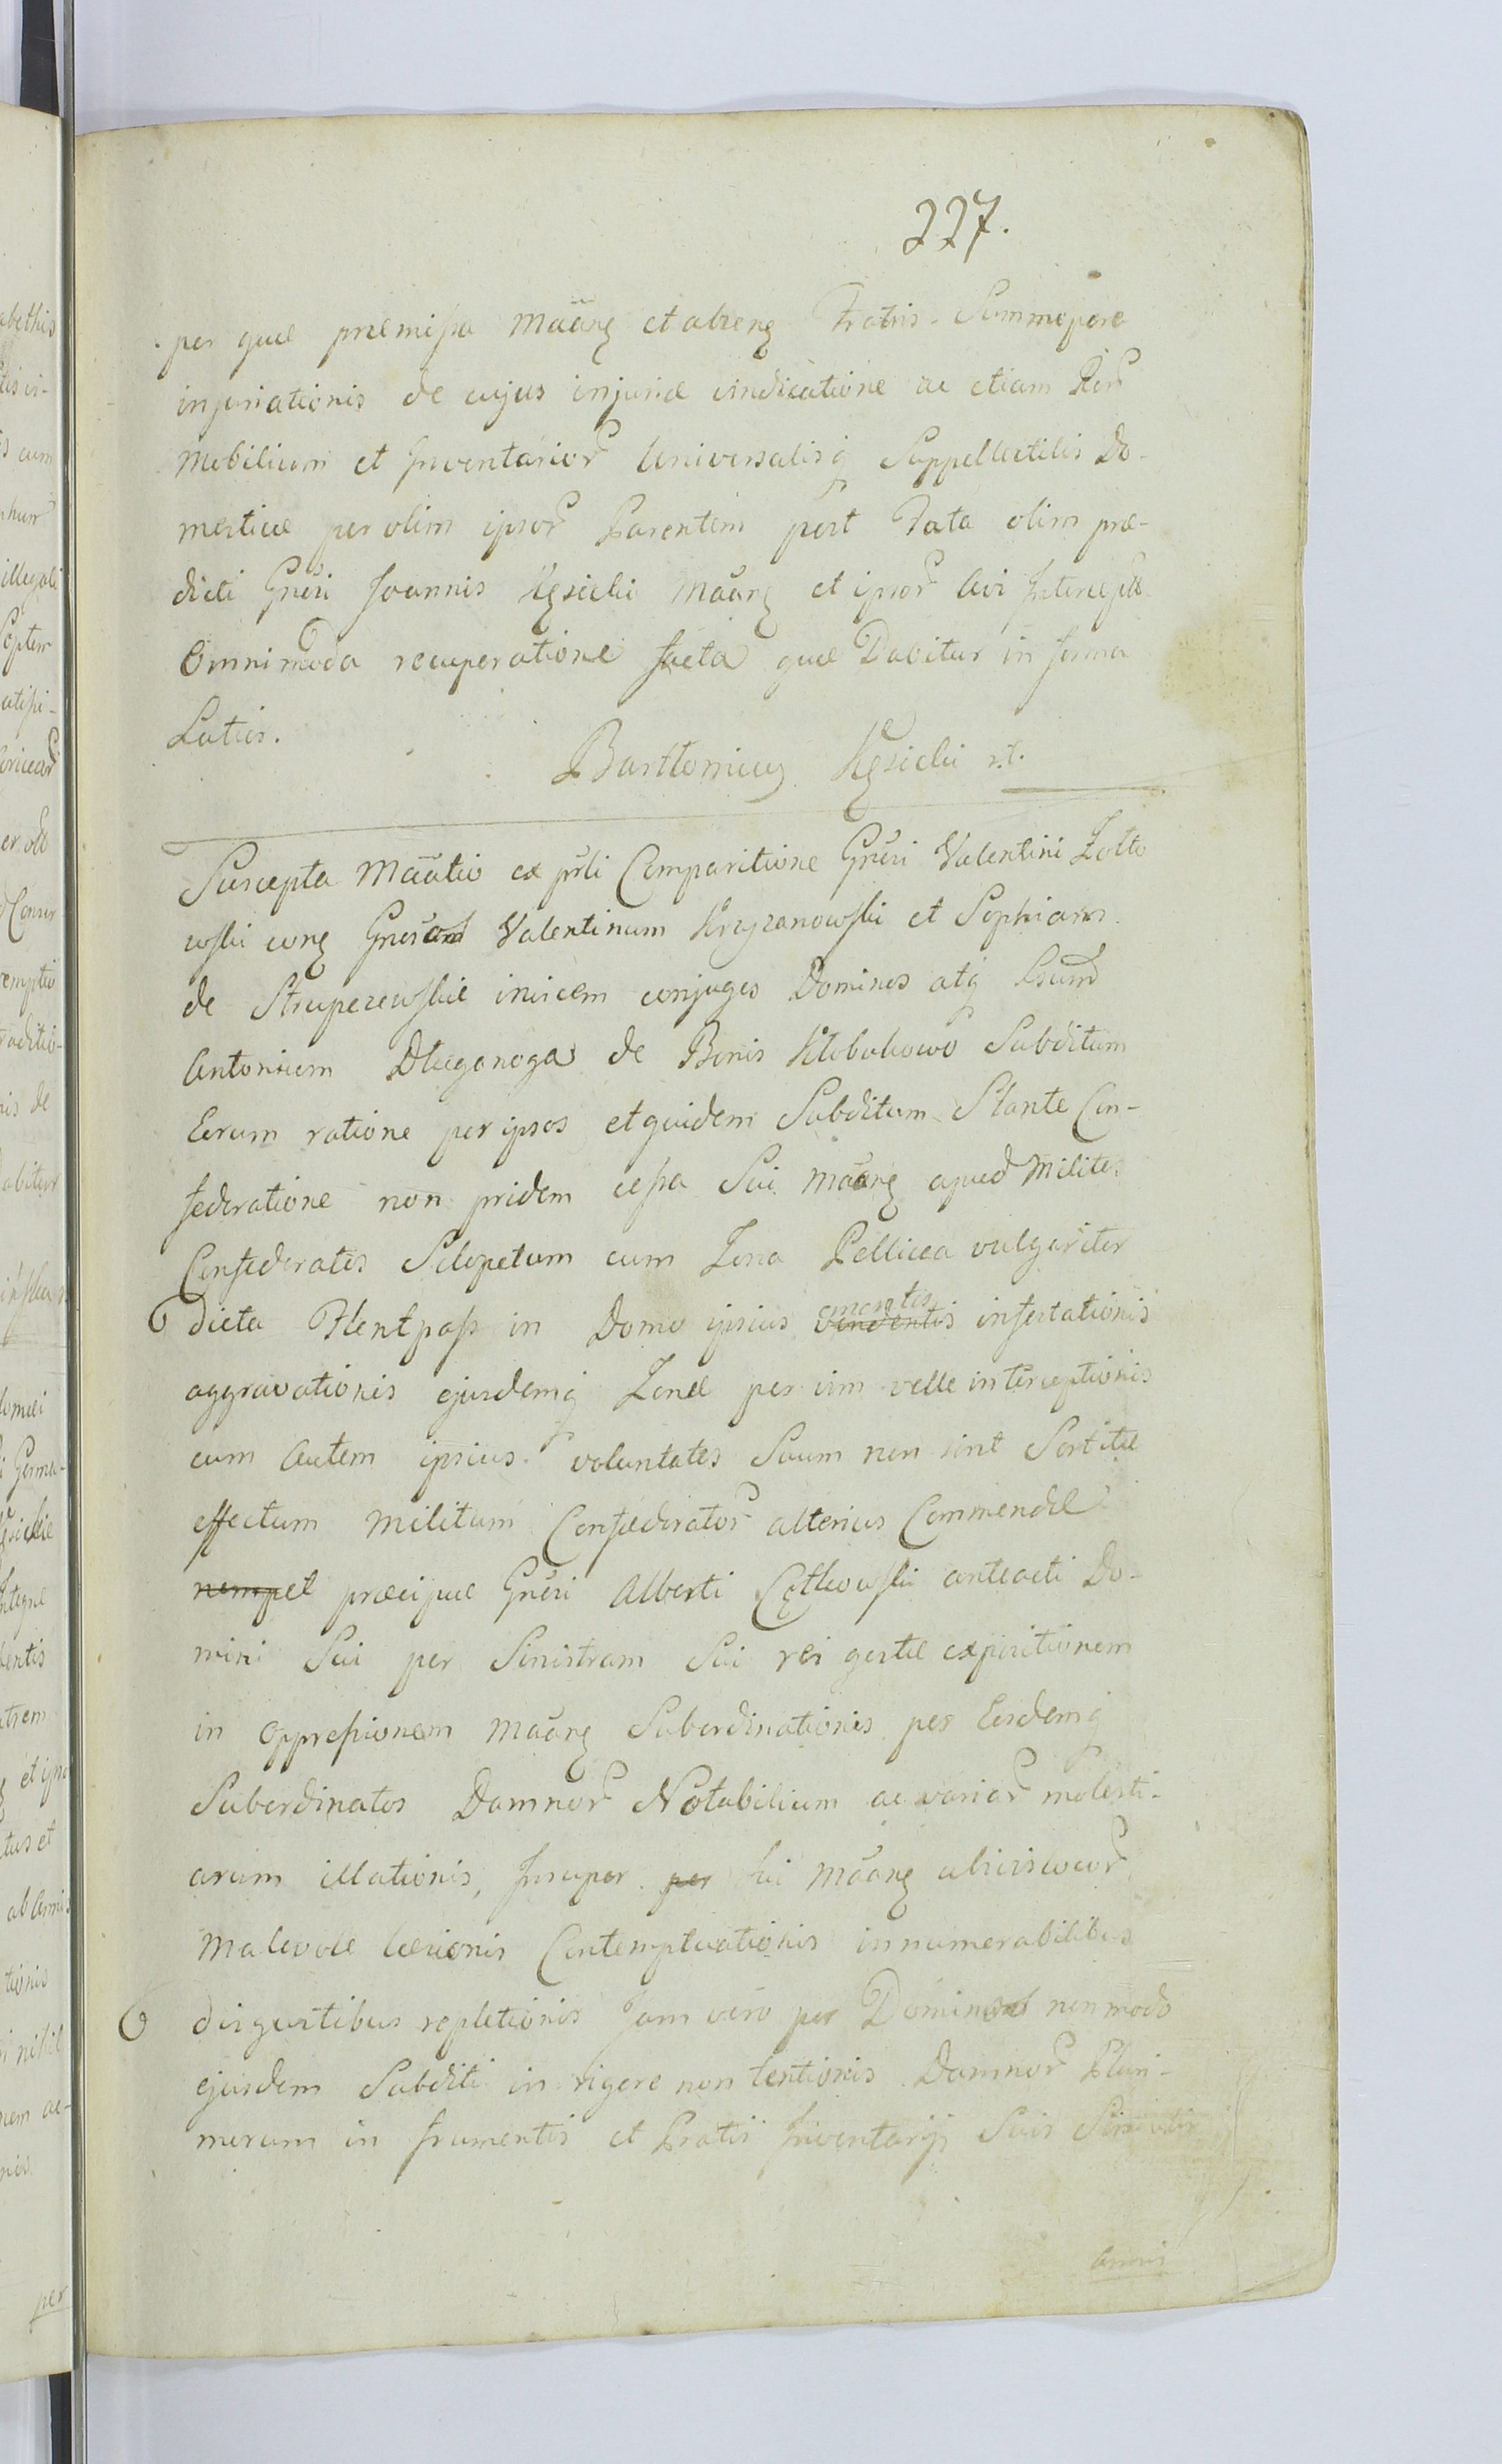 227.
per quæ præmissa Mããrę et abreng Fratris Summopere
injuriationis de cujus injuriæ vindicatione ac etiam Rer̃
Mobilium et Inventarior̃ Universalisq̨ Suppellectilis Do-
mesticæ per olim ipsor̃ Parentem post Fata olim præ-
dicti Gñẽsi Joannis Kęsicki Mããrę et ipsor̃ Avi Interceptæ
Omnimoda recuperatione facta quæ Dabitur in forma
Latior.
Bartłomiey Kęsicki r.t.
Suscepta Mãatio ex p̃r̃li Comparitione Gñẽsi Valentini Zółto
wski corą Gñesos Valentinum Krzyzanowski et Sophiam
de Strupczewskie invicem conjuges Dominos atq̨ Lsum̃
Antonium Długonoga de Bonis Kłobukowo Subditum
Eorum ratione per ipsos et quidem Subditum Stante Con-
federatione non pridem cessa Sui Mããrę apud Milites
Confederatos Sclopetum cum Zona Pellicea vulgariter
dicta Flentpass in Domo ipsius vendentis ementis infestationis
aggravationis ejusdemq̨ Zonæ per vim velle interceptionis
cum Autem ipsius voluntates Suum non sint Sortitæ
effectum Militum Confæderator̃ alterius Commendæ
nempe et præcipue Gñẽsi Alberti Cętkowski anteacti Do-
mini Sui per Sinistram Sui rei gestæ expositionem
in Oppressionem Mããrę Subordinationis per Eosdemq̨
Subordinatos Damnor̃ Notabilium ac variar̃ molesti-
arum illationis, Insuper per Sui Mããrę ubivislocor̃
Malevole læsionis Contemptuationis innumerabilibus
disgustibus repletionis Jam vero per Dominos non modo
ejusdem Subditi in rigore non tentionis Damnor̃ Pluri-
morum in frumentis et Pratis Inventarijs Suis
Annis